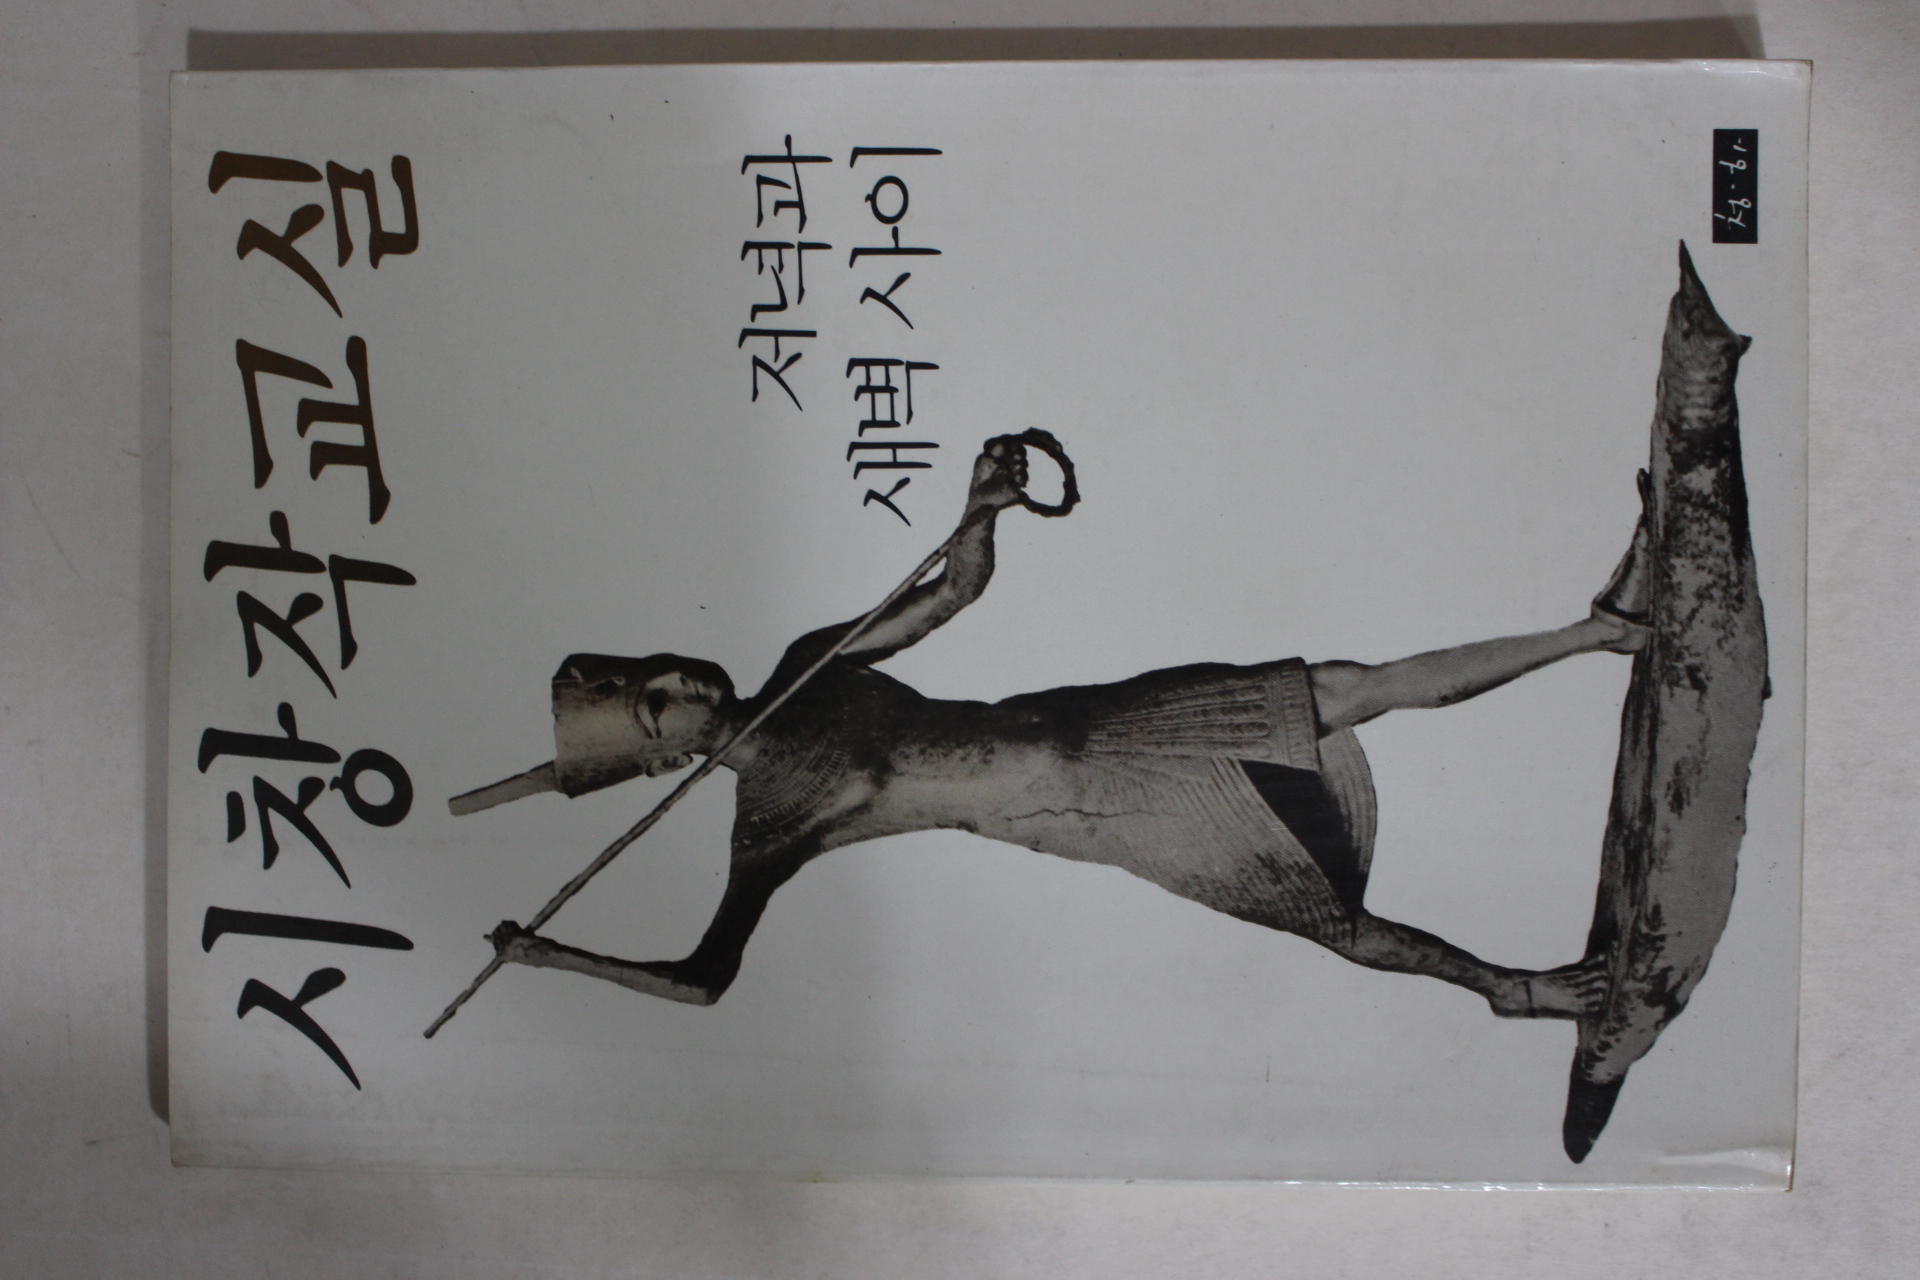 시창작교실
저녁과
새벽 사이